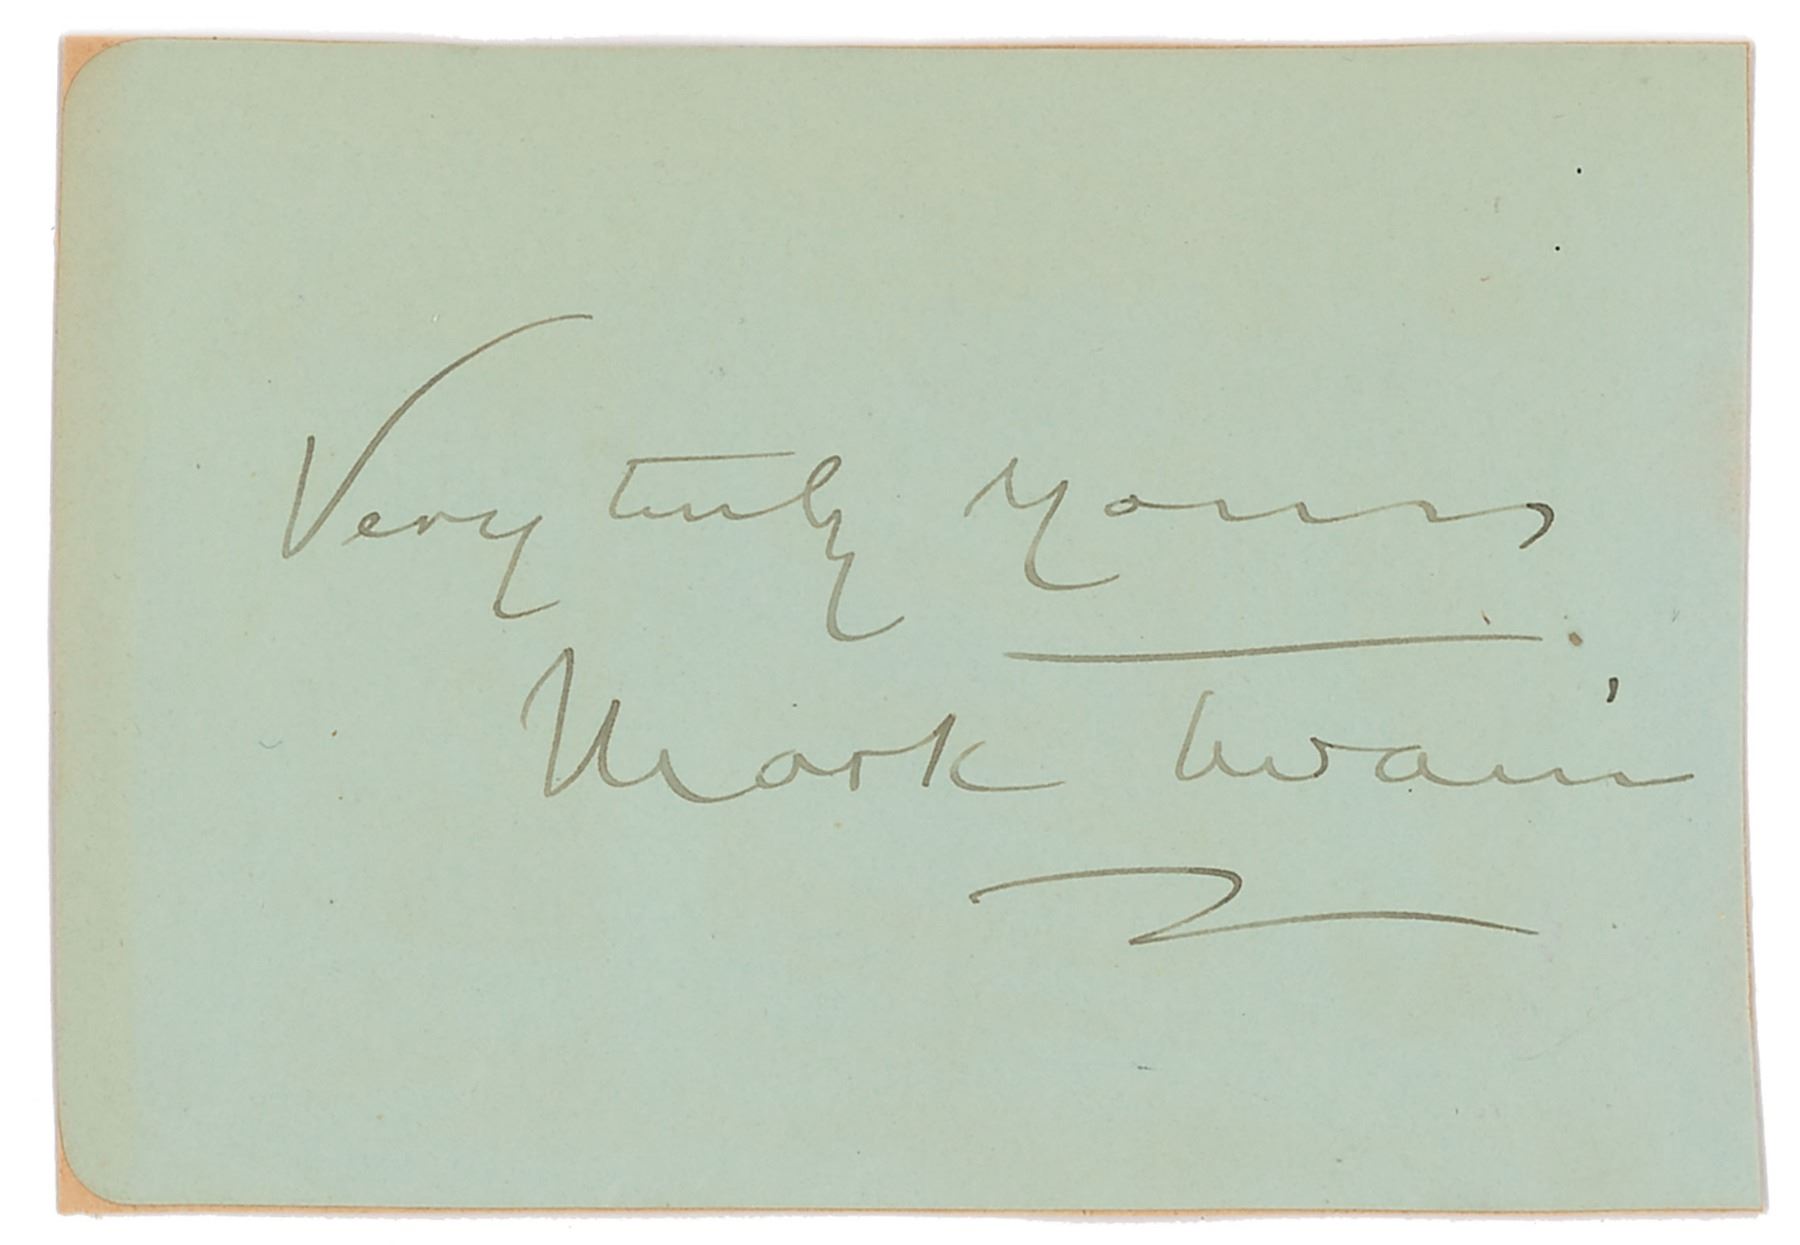 Very truly yours
Mark Twain